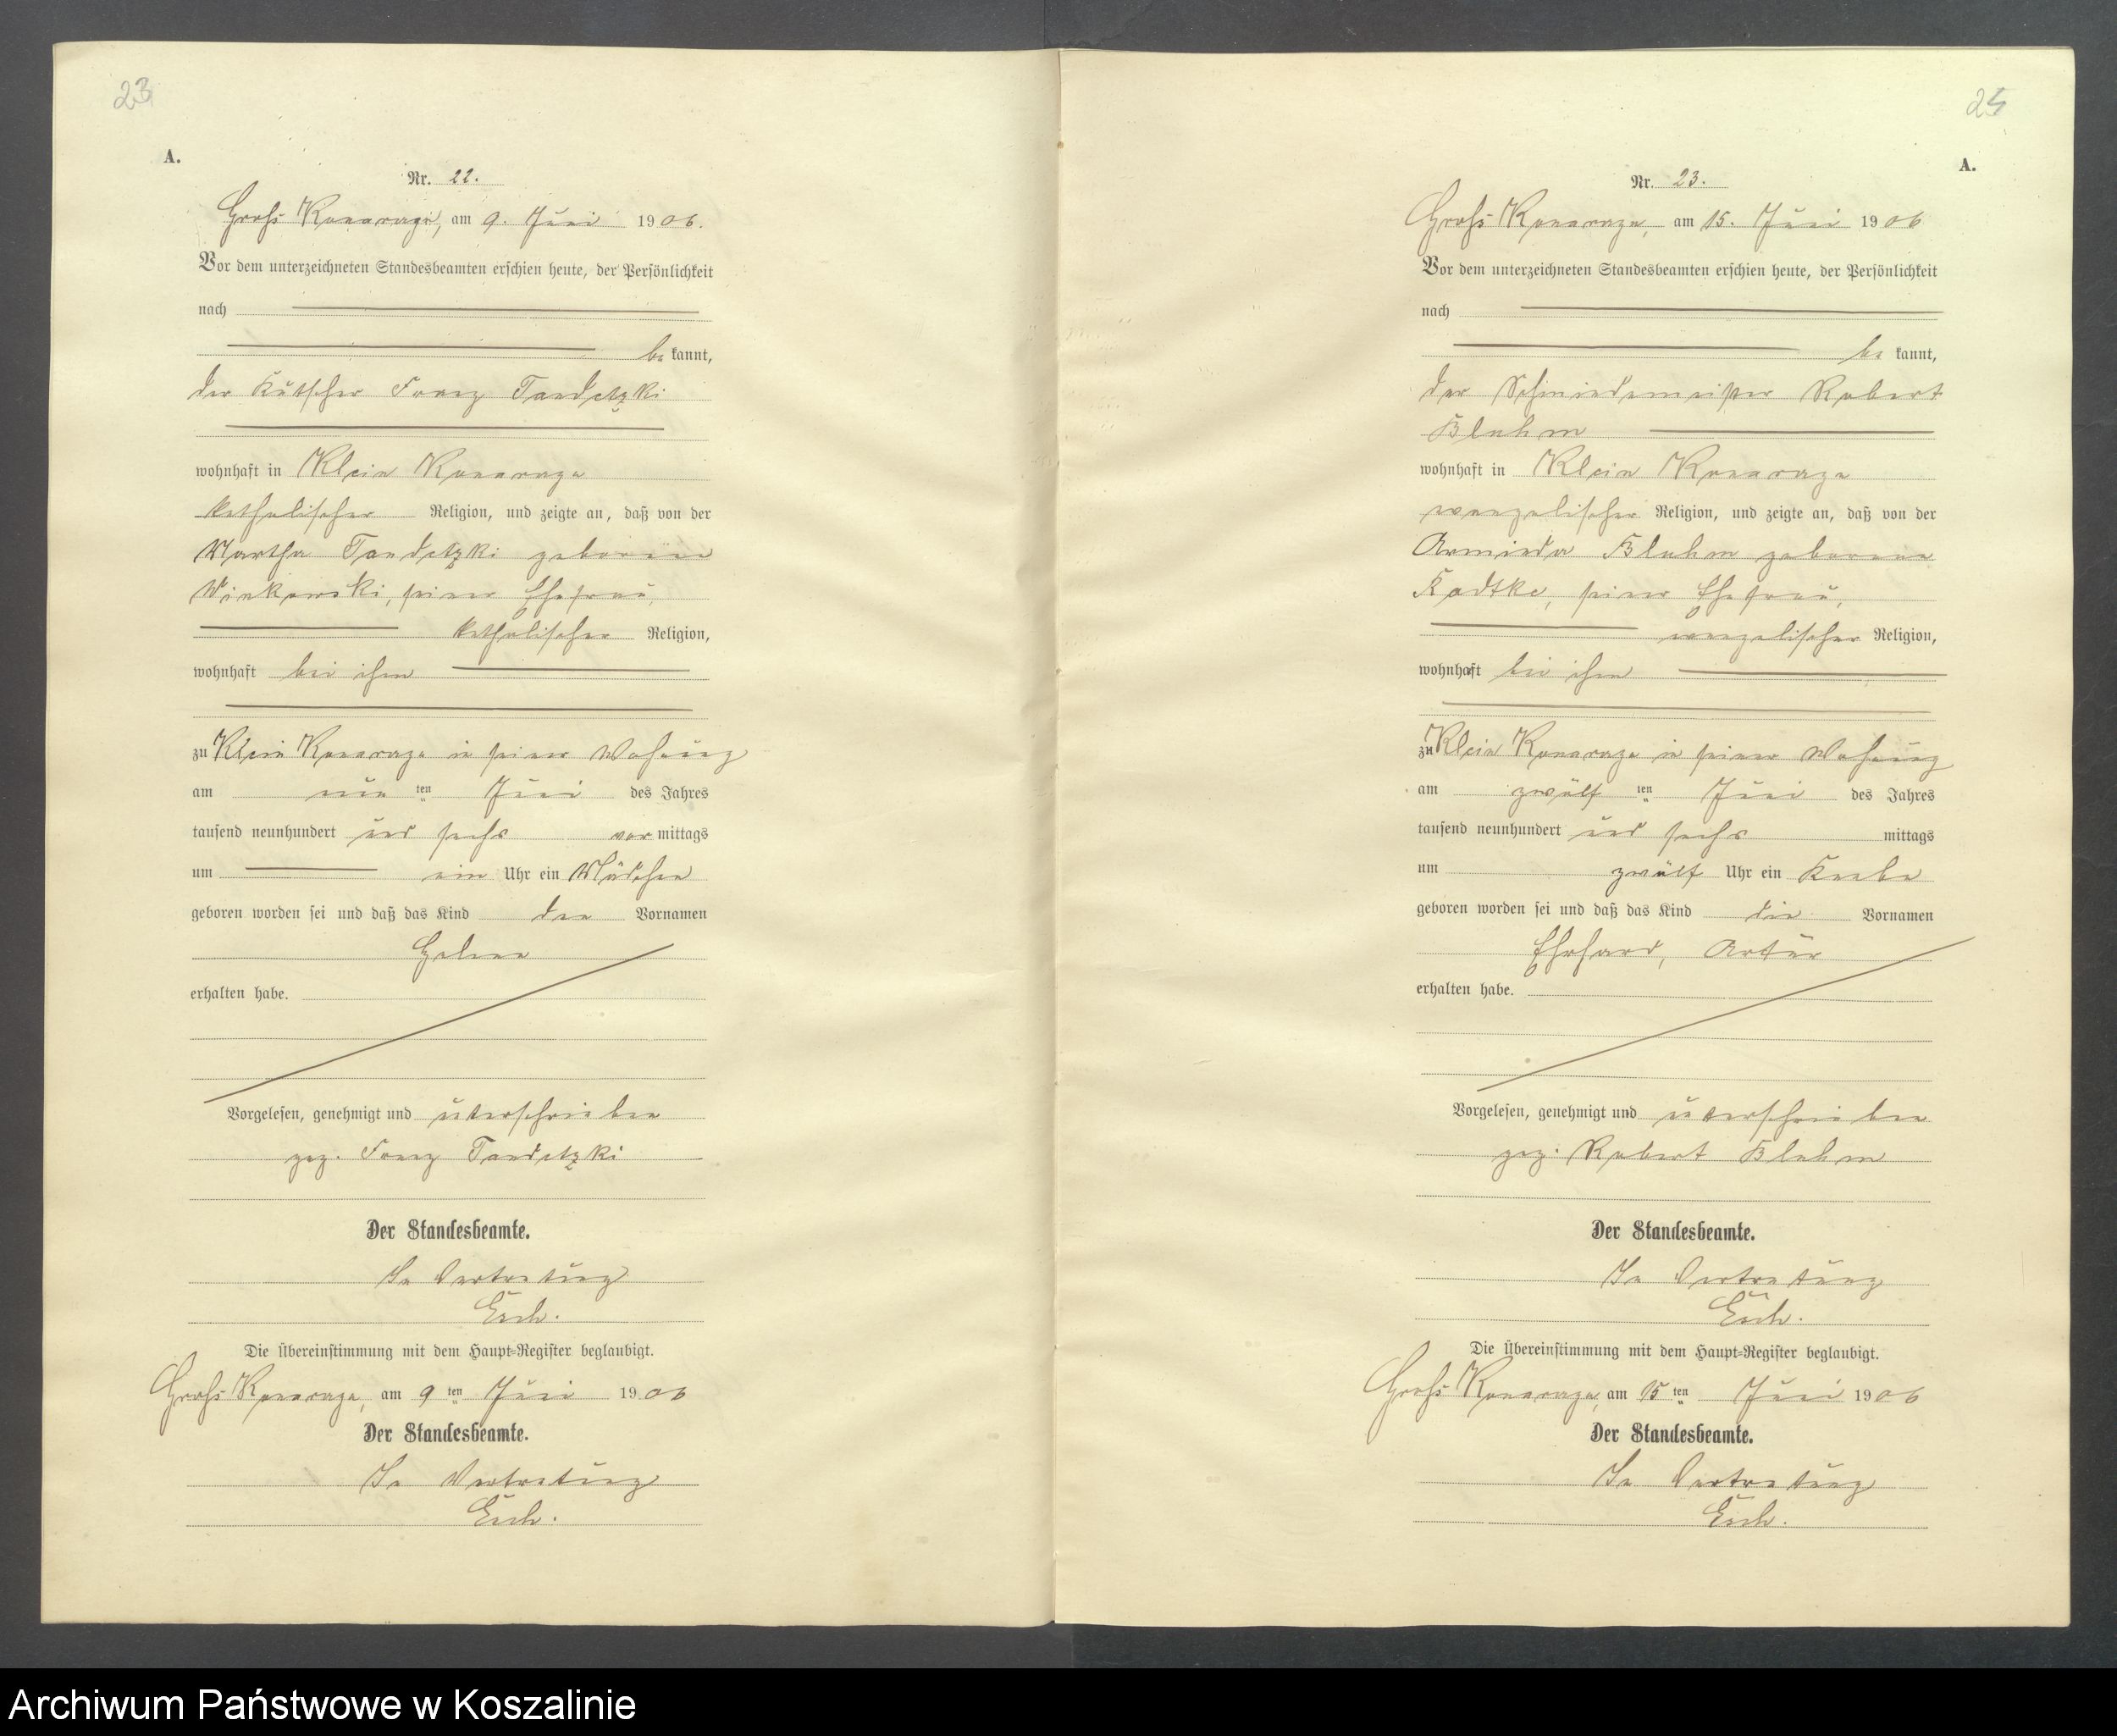 23
A.
Nr. 22.
Groß Konarzyn, am 9. Juni 1906.
Vor dem unterzeichneten Standesbeamten erschien heute, der Persönlichkeit
nach
be kannt,
der Kutscher Franz Tandetzki
wohnhaft in Klein Konarzyn
katholischer Religion, und zeigte an, daß von der
Martha Tandetzki geborene
Winkowski, seiner Ehefrau,
katholischer Religion,
wohnhaft bei ihm
zu Klein Konarzyn in seiner Wohnung
am neun ten Juni des Jahres
tausend neunhundert und sechs vor mittags
um ein Uhr ein Mädchen
geboren worden sei und daß das Kind den Vornamen
Helene
erhalten habe.
Vorgelesen, genehmigt und unterschrieben
gez. Franz Tandetzki
Der Standesbeamte.
In Vertretung
Esch.
Die Übereinstimmung mit dem Haupt-Register beglaubigt.
Groß Konarzyn, am 9 ten Juni 1906
Der Standesbeamte.
In Vertretung
Esch.
25
A.
Nr. 23.
Groß Konarzyn, am 15. Juni 1906
Vor dem unterzeichneten Standesbeamten erschien heute, der Persönlichkeit
nach
be kannt,
der Schmiedemeister Robert
Bluhm
wohnhaft in Klein Konarzyn
evangelischer Religion, und zeigte an, daß von der
Bluhm geborene
Radtke, seiner Ehefrau,
evangelischer Religion,
wohnhaft bei ihm
zu Klein Konarzyn in seiner Wohnung
am zwölf ten Juni des Jahres
tausend neunhundert und sechs mittags
um zwölf Uhr ein Knabe
geboren worden sei und daß das Kind die Vornamen
Ehrhard, Artur
erhalten habe.
Vorgelesen, genehmigt und unterschrieben
gez. Robert Bluhm
Der Standesbeamte.
In Vertretung
Esch.
Die Übereinstimmung mit dem Haupt-Register beglaubigt.
Groß Konarzyn, am 15 ten Juni 1906
Der Standesbeamte.
In Vertretung
Esch.
Archiwum Państwowe w Koszalinie